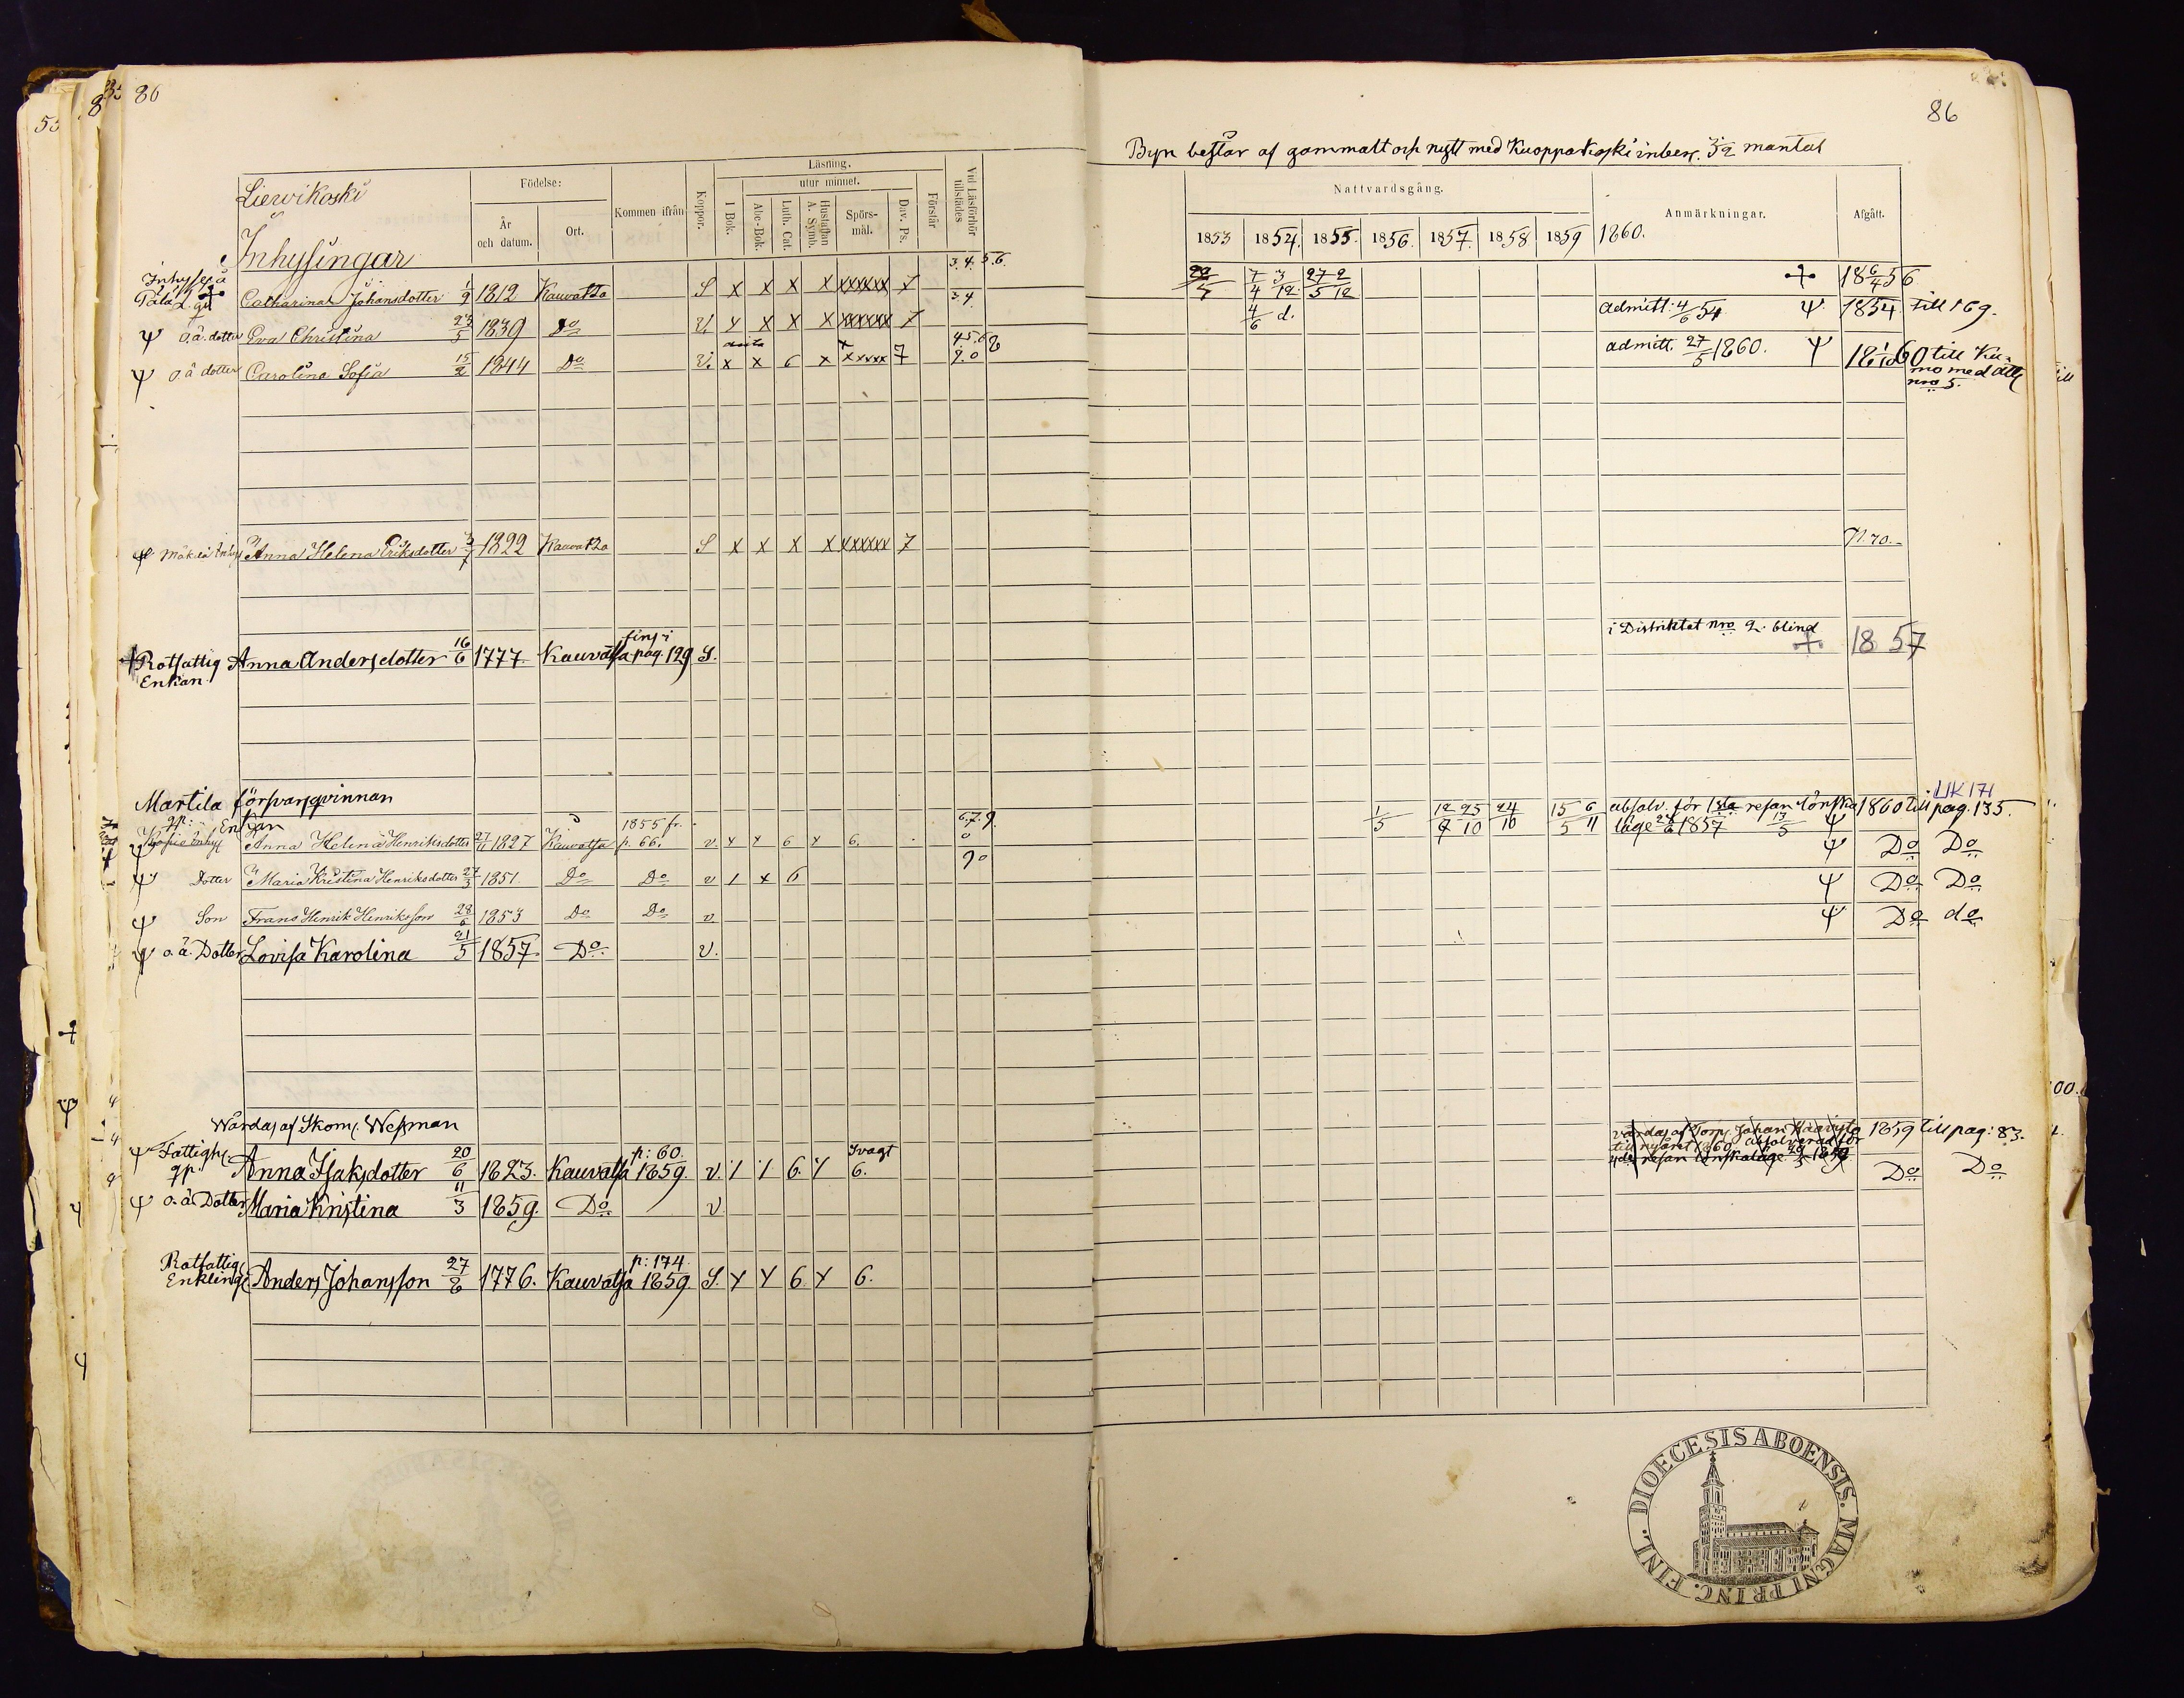 86
86
Byn består af gammalt och nytt med Kuoppakoski inber. 3½ mantal
Lievikoski
Inhysingar
Födelse:
År och datum.
Ort.
Kommen ifrån
Koppor.
Läsning.
utur minnet.
I Bok.
Abc-Bok.
Luth. Cat.
Hustaflan A. Symb.
Spörs-mål.
Dav. Ps.
Förstår
Vid Läsförhör tillstädes
Nattvardsgång.
1853 1854. 1855. 1856. 1857. 1858 1859 1860.
Anmärkningar.
Afgått.
Catharina Johansdotter 1/9 1812 Kauvatsa S x x x x xxxxxx 7 3.4.5.6. 7/4 3/12 27/5 2/12 + 18 6/4 56
Ψ o.ä. dotter Eva Christina 23/5 1839 Do U x x x x xxxxxx 7 3.4. 4/6 d. admitt: 4/6 54 Ψ 1854 till 169.
Ψ o.ä dotter Carolina Sofia 15/2 1844 Do V. x x 6 x xxxxx 7 admitt. 27/5 1860. Ψ 18 1/10 60 till Ku-
mo med att
nro 5.
Anna Helena Eriksdotter 3/7 1822 Kauvatsa S x x x x xxxxxx 7 P. 70.
fins i
+ Rotfattig Anna Andersdotter 16/6 1777. Kauvatsa pag. 129 S. i Distriktet nro 2. blind + 1857
Enkan
Martila försvarsqvinnan
qp: Enkan 1855 fr. 6.7.9. UK 171
Anna Helena Henriksdotter 27/11 1827 Kauvatsa p. 66. v. x x 6 x 6. 0 1/5 12/4 25/10 24/10 15/5 6/11 absolv. för 1sta resan lönska 1860 till pag. 135.
läge 1857 13/5 Ψ
Ψ Dotter Maria Kristina Henriksdotter 27/3 1851. Do Do v 1 x 6 90 Ψ Do Do
Ψ Son Frans Henrik Henriksson 28/6 1853 Do Do v Ψ Do Do
Ψ o.ä. Dotter Lovisa Karolina 21/5 1857. Do. V. Ψ Do do
Wårdas af Skom. Wessman
Ψ Fattighj. p: 60. Svagt
qp Anna Isaksdotter 20/6 1823. Kauvatsa 1859. v. 6. 6. vårdas af Torp. Johan 1859 till pag: 83.
till nyåret 1860 absolverad för
resan lönskaläge 1859
Ψ o.ä. Dotter Maria Kristina 11/3 1859. Do. V Do Do
Rotfattig p: 174.
Enkling Anders Johansson 27/8 1776. Kauvatsa 1859. S. x x 6 x 6.
DIOECESIS ABOENSIS. MAGNI PRINC. FINL.